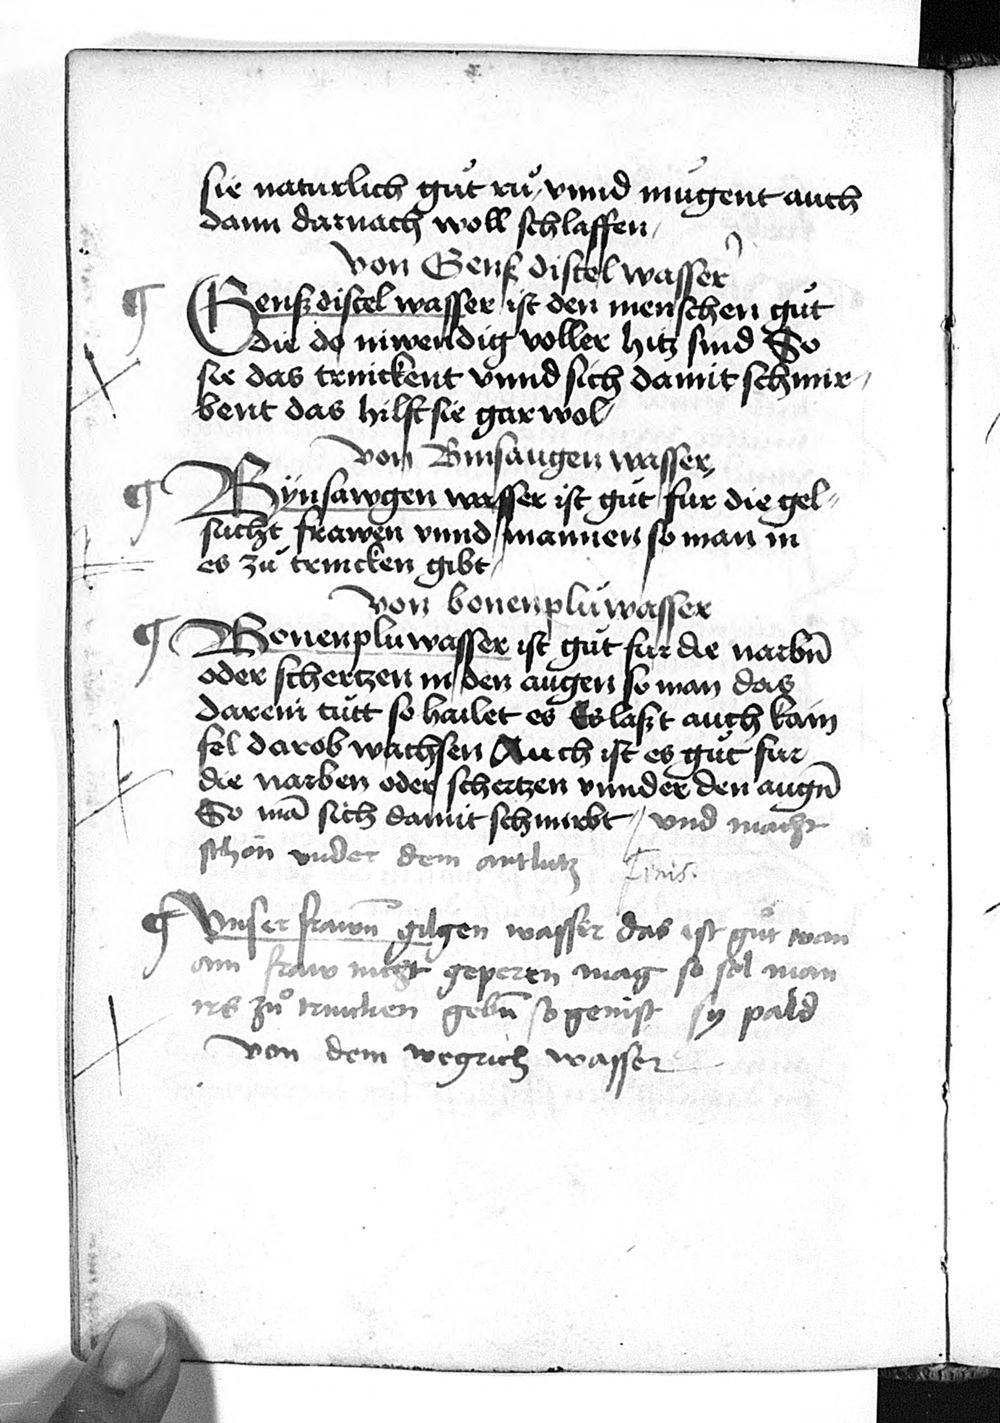 sie naturlich gůt rů / vnnd mugent auch
dann darnach woll schlaffen /
von Genß distel wasser
¶ Genßdistel wasser ist den menschen gůt
die do inwendig voller hitz sind So
sie das trinckent vnnd sich damit schmir-
bent das hilft sie gar wol /
von Binsaugen wasser
¶ Bynsawgen wasser ist gůt fur die gel-
sücht frawen vnnd mannen so man in
es zů trincken gibt /
von bonenplů wasser
¶ Bonenplu wasser ist gůt fur die narbn̄
oder schertzen in den augen so man das
darein tůtt so hailet es Es laßt auch kain
fel darob wachsen Auch ist es gůt fur
die narben oder schertzen vnnder den augn̄
So mā sich damit schmirbt / vnd macht
schon vnder dem antlutz finis.
¶ Vnser frawn̄ gilgen wasser das ist gůt wan
ain fraw nicht geperen mag so sol man
irs zů trincken gebn̄ so genist sy pald
von dem wegrich wasser